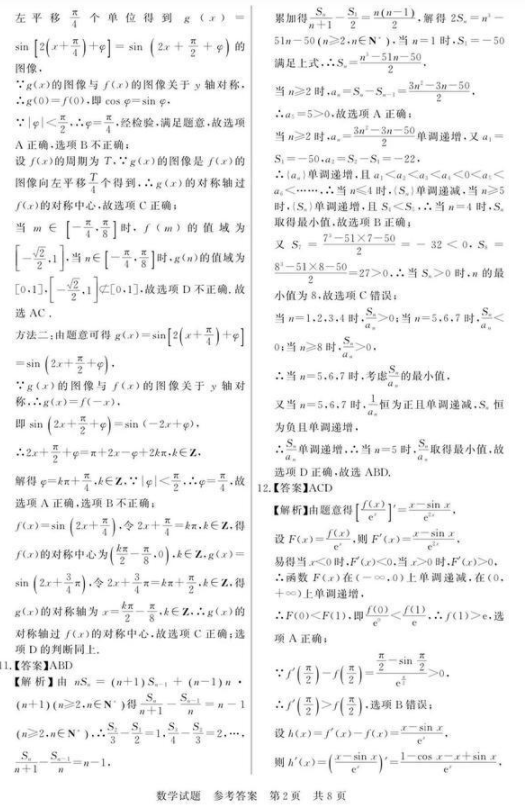 左平移 π/4 个单位得到 g(x)=
sin[2(x+π/4)+φ]=sin(2x+π/2+φ)的
图像,
∵g(x)的图像与 f(x)的图像关于 y 轴对称,
∴g(0)=f(0),即 cos φ=sin φ,
∵|φ|<π/2,∴φ=π/4,经检验,满足题意,故选项
A 正确,选项 B 不正确;
设 f(x)的周期为 T,∵g(x)的图像是 f(x)的
图像向左平移 T/4 个得到,∴g(x)的对称轴过
f(x)的对称中心,故选项 C 正确;
当 m∈[-π/4,π/8]时,f(m)的值域为
[-√2/2,1],当 n∈[-π/4,π/8]时,g(n)的值域为
[0,1],[-√2/2,1]⊄[0,1],故选项 D 不正确.故
选 AC.
方法二:由题意可得 g(x)=sin[2(x+π/4)+φ]
=sin(2x+π/2+φ),
∵g(x)的图像与 f(x)的图像关于 y 轴对
称,∴g(x)=f(-x),
即 sin(2x+π/2+φ)=sin(-2x+φ),
∴2x+π/2+φ=π+2x-φ+2kπ,k∈Z,
解得 φ=kπ+π/4,k∈Z,∵|φ|<π/2,∴φ=π/4,故
选项 A 正确,选项 B 不正确;
f(x)=sin(2x+π/4),令 2x+π/4=kπ,k∈Z,得
f(x)的对称中心为(kπ/2-π/8,0),k∈Z,g(x)=
sin(2x+3/4π),令 2x+3/4π=kπ+π/2,k∈Z,得
g(x)的对称轴为 x=kπ/2-π/8,k∈Z,∴g(x)的
对称轴过 f(x)的对称中心,故选项 C 正确;选
项 D 的判断同上.
11.【答案】ABD
【解析】由 nSₙ=(n+1)Sₙ₋₁+(n-1)n·
(n+1)(n≥2,n∈N*)得 Sₙ/(n+1)-Sₙ₋₁/n=n-1
(n≥2,n∈N*),∴S₂/3-S₁/2=1,S₃/4-S₂/3=2,…,
Sₙ/(n+1)-Sₙ₋₁/n=n-1,
累加得 Sₙ/(n+1)-S₁/2=n(n-1)/2,解得 2Sₙ=n³-
51n-50(n≥2,n∈N*),当 n=1 时,S₁=-50
满足上式,∴Sₙ=(n³-51n-50)/2,
当 n≥2 时,aₙ=Sₙ-Sₙ₋₁=(3n²-3n-50)/2,
∴a₅=5>0,故选项 A 正确;
当 n≥2 时,aₙ=(3n²-3n-50)/2 单调递增,又 a₁=
S₁=-50,a₂=S₂-S₁=-22,
∴{aₙ}单调递增,且 a₁<a₂<a₃<a₄<0<a₅<
a₆<……,∴当 n≤4 时,{Sₙ}单调递减,当 n≥5
时,{Sₙ}单调递增,且 S₅<S₁,∴当 n=4 时,Sₙ
取得最小值,故选项 B 正确;
又 S₇=(7³-51×7-50)/2=-32<0,S₈=
(8³-51×8-50)/2=27>0,∴当 Sₙ>0 时,n 的最
小值为 8,故选项 C 错误;
当 n=1,2,3,4 时,Sₙ/aₙ>0;当 n=5,6,7 时,Sₙ/aₙ<
0;当 n≥8 时,Sₙ/aₙ>0,
∴当 n=5,6,7 时,考虑 Sₙ/aₙ 的最小值,
又当 n=5,6,7 时,1/aₙ 恒为正且单调递减,Sₙ 恒
为负且单调递增,
∴Sₙ/aₙ 单调递增,∴当 n=5 时,Sₙ/aₙ 取得最小值,故
选项 D 正确,故选 ABD.
12.【答案】ACD
【解析】由题意得[f(x)/eˣ]′=(x-sin x)/e²ˣ,
设 F(x)=f(x)/eˣ,则 F′(x)=(x-sin x)/e²ˣ,
易得当 x<0 时,F′(x)<0,当 x>0 时,F′(x)>0,
∴函数 F(x)在(-∞,0)上单调递减,在(0,
+∞)上单调递增,
∴F(0)<F(1),即 f(0)/e⁰<f(1)/e,∴f(1)>e,选
项 A 正确;
∵f′(π/2)-f(π/2)=(π/2-sin π/2)/e^(π/2)>0,
∴f′(π/2)>f(π/2),选项 B 错误;
设 h(x)=f′(x)-f(x)=(x-sin x)/eˣ,
则 h′(x)=((x-sin x)/eˣ)′=(1-cos x-x+sin x)/eˣ,
数学试题 参考答案 第 2 页 共 8 页